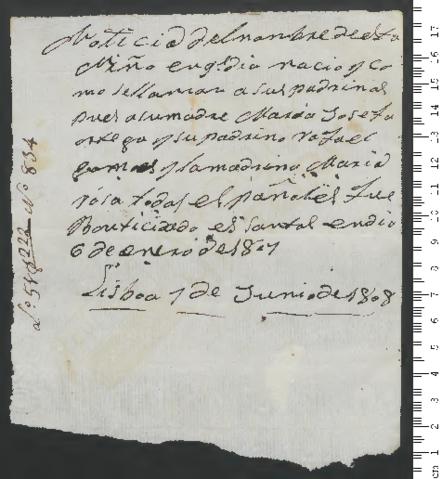 Noticia del nombre de esta
Niño en q dia nacio y co
mo se llaman a sus padrinos
pues a su madre Maria Josefa
ortega y su padrino rafael
gomes y la madrina Maria
rosa todos españoles fue
Bautizado el santos en dia
6 de enero de 1807
Lisboa 7 de Junio de 1808
Nº 834
cm 1 2 3 4 5 6 7 8 9 10 11 12 13 14 15 16 17